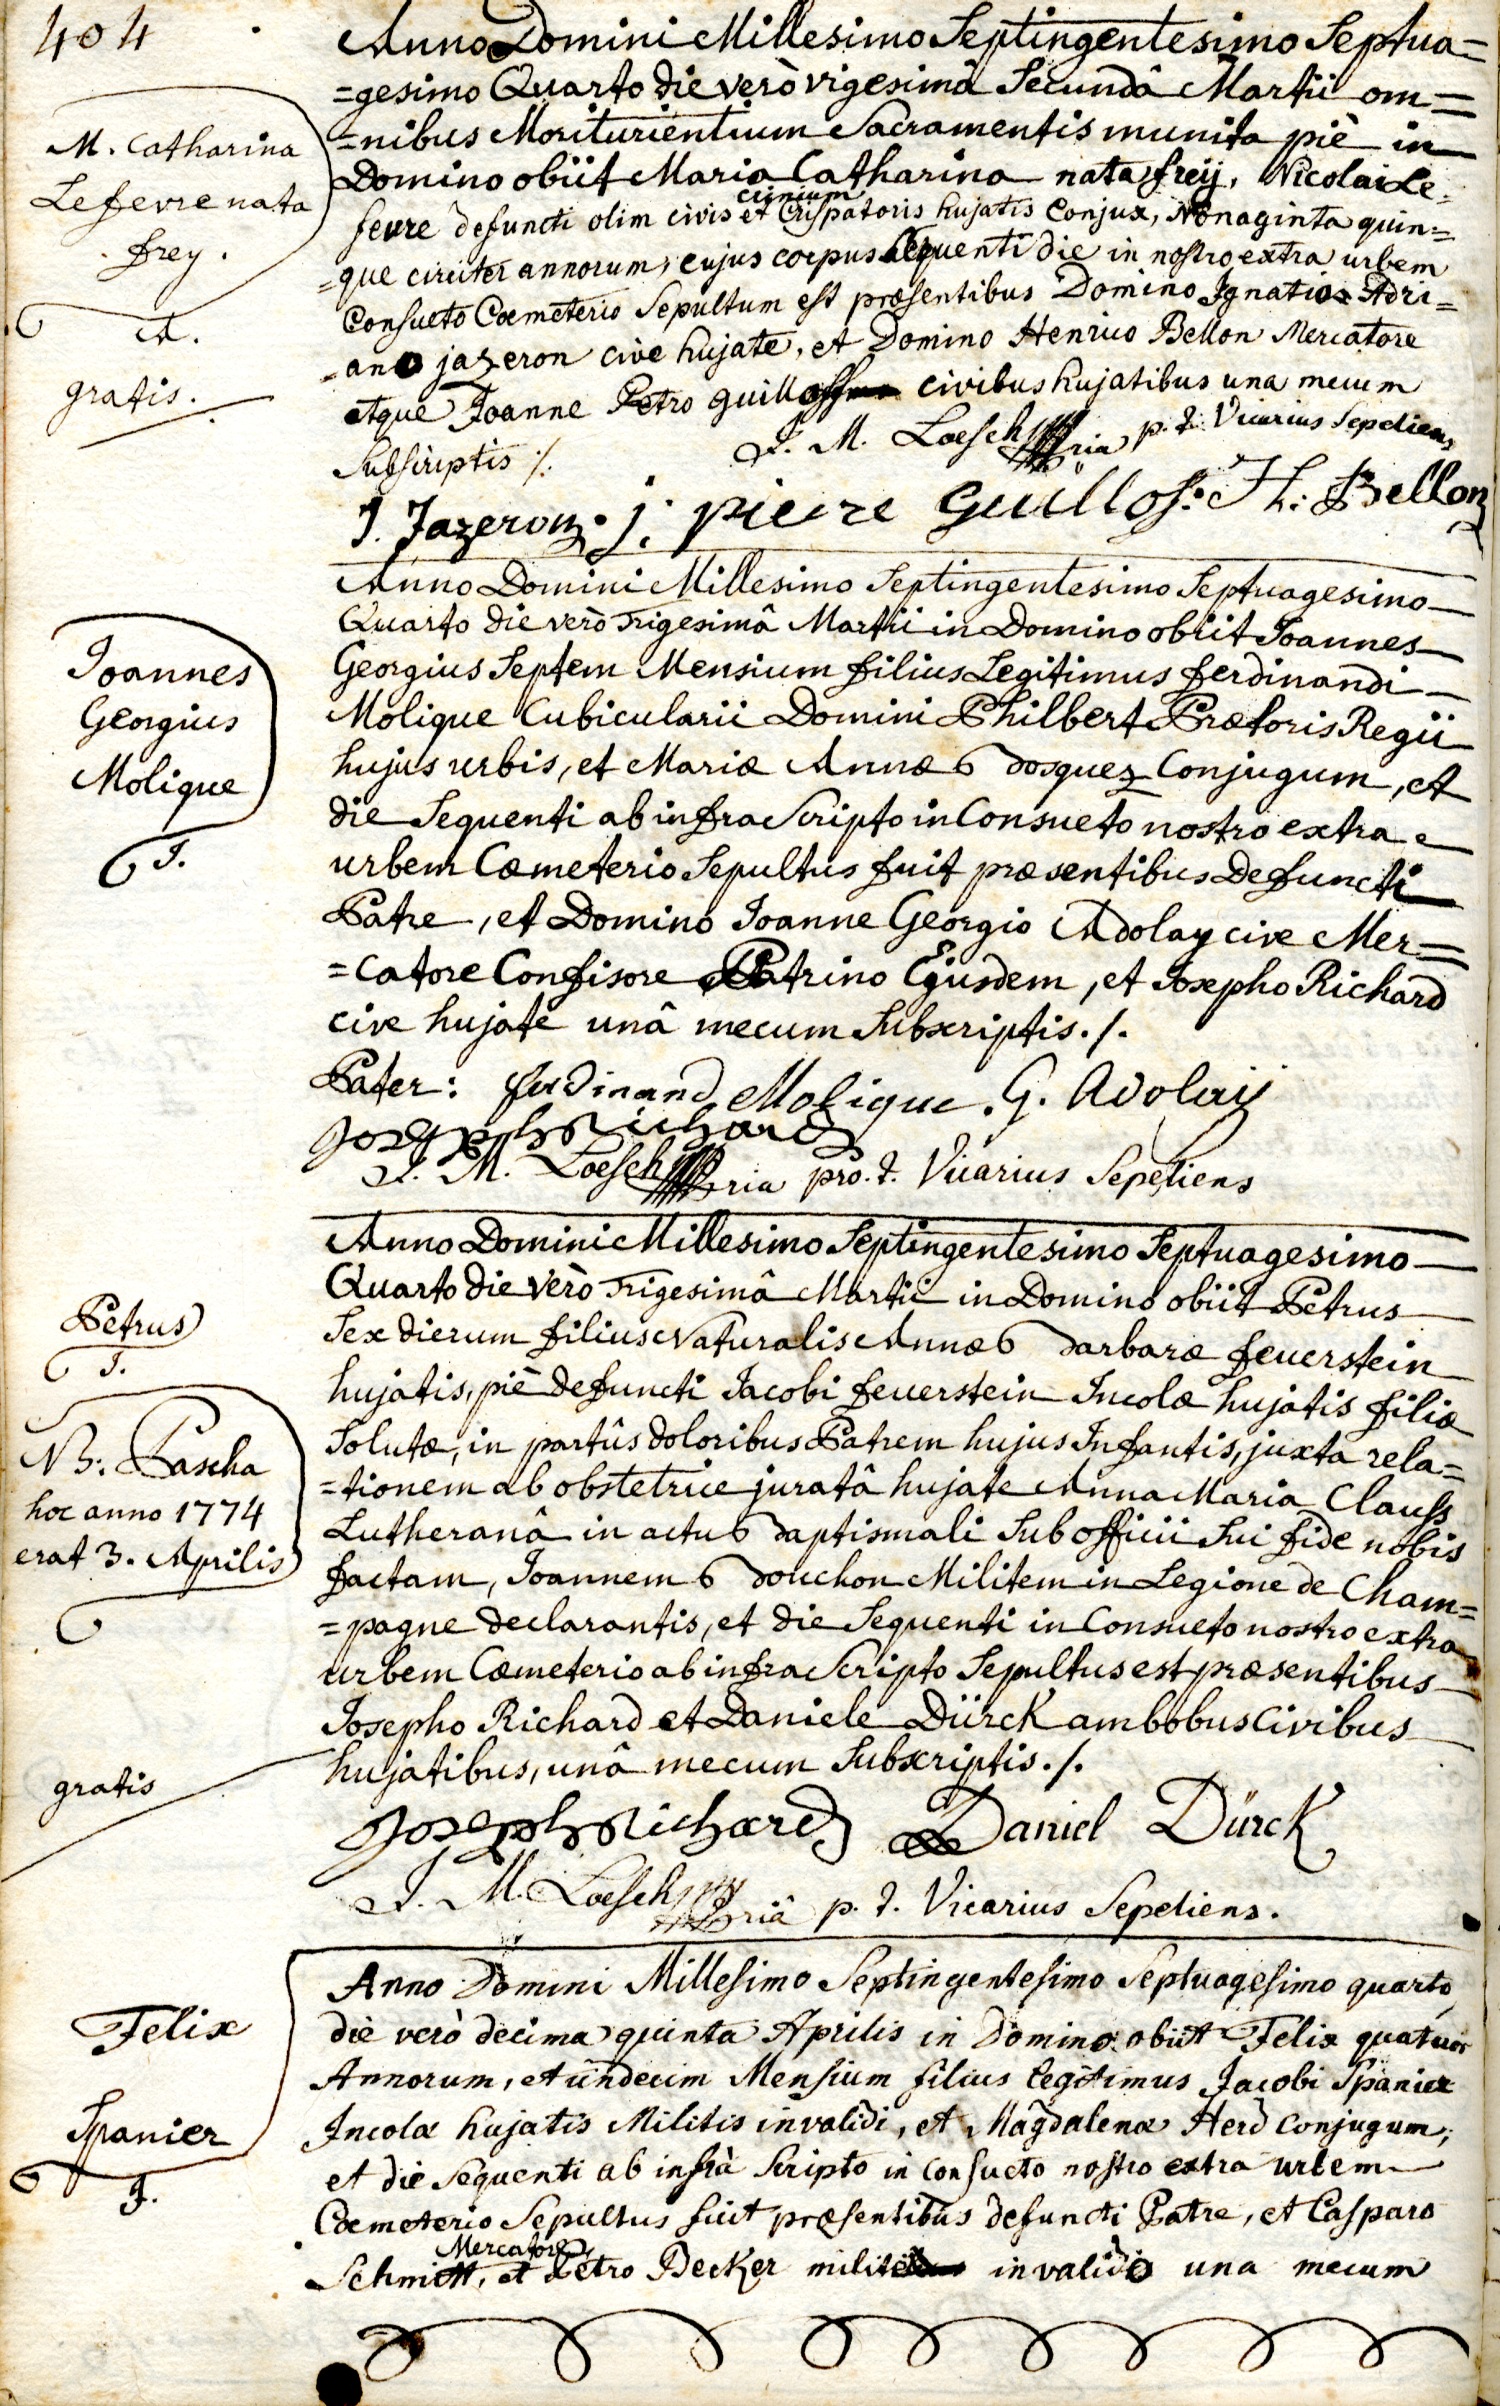 404
M. Catharina
Lefevre nata
frey.
A.
gratis.
Anno Domini Millesimo Septingentesimo Septua=
=gesimo Quarto die verò vigesimâ Secundâ Martii om=
=nibus Moriturientium Sacramentis munita piè in
Domino obiit Maria Catharina nata freÿ, Nicolai Le=
crinium
fevre defuncti olim civis et Crispatoris hujatis Conjux, Nonaginta quin=
=que circiter annorum, cujus corpus sequenti die in nostro extra urbem
Consueto Coemeterio Sepultum est præsentibus Domino Ignatio Adri=
=ano jazeron cive hujate, et Domino Henrico Bellon Mercatore
atque Joanne Petro civibus hujatibus una mecum
Subscriptis ./.
J. M. Loesch ria p. t. Vicarius Sepeliens
J. Jazeron. j. pierre Guillos. H: Bellon
Joannes
Georgius
Molique
J.
Anno Domini Millesimo Septingentesimo Septuagesimo
Quarto die verò Trigesimâ Martii in Domino obiit Joannes
Georgius Septem Mensium filius Legitimus ferdinandi
Molique Cubicularii Domini Philbert Prætoris Regii
hujus urbis, et Mariæ Annæ bosquez Conjugum, et
die Sequenti ab infra Scripto in Consueto nostro extra
urbem Cœmeterio Sepultus fuit præsentibus Defuncti
Patre, et Domino Joanne Georgio Adolay cive Mer=
=catore Confisore Patrino Ejusdem, et Josepho Richard
cive hujate unâ mecum Subscriptis ./.
Pater: ferdinand Molique. G. Adolaÿ
Joseph Richard
J. M. Loesch ria pro. t. Vicarius Sepeliens
Petrus
J.
NB: Pascha
hoc anno 1774
erat 3. Aprilis
gratis
Anno Domini Millesimo Septingentesimo Septuagesimo
Quarto die Verò Trigesimâ Martii in Domino obiit Petrus
Sex dierum filius Naturalis Annæ barbaræ feuerstein
hujatis, piè defuncti Jacobi feuerstein Incolæ hujatis filiæ
Solutæ, in partûs doloribus Patrem hujus Infantis, juxta rela=
=tionem ab obstetrice juratâ hujate Anna Maria Clauss
Lutheranâ in actu baptismali Sub officii Sui fide nobis
factam, Joannem bouchon Militem in Legione de Cham=
=pagne declarantis, et die Sequenti in Consueto nostro extra
urbem Cœmeterio ab infra Scripto Sepultus est præsentibus
Josepho Richard et Daniele Dürck ambobus Civibus
hujatibus, unâ mecum Subscriptis ./.
Joseph Richard Daniel Dürck
J. M. Loesch riâ p. t. Vicarius Sepeliens.
Felix
Spanier
J.
Anno Domini Millesimo Septingentesimo Septuagesimo quarto
die verò decima quinta Aprilis in Domino obiit Felix quatuor
Annorum, et undecim Mensium filius legitimus Jacobi Spanier
Incolæ hujatis Militis invalidi, et Magdalenæ Herd conjugum,
et die Sequenti ab infrà Scripto in consueto nostro extra urbem
Coemeterio Sepultus fuit præsentibus defuncti Patre, et Casparo
Mercatore
Schmitt, et Petro Becker milite invalido una mecum